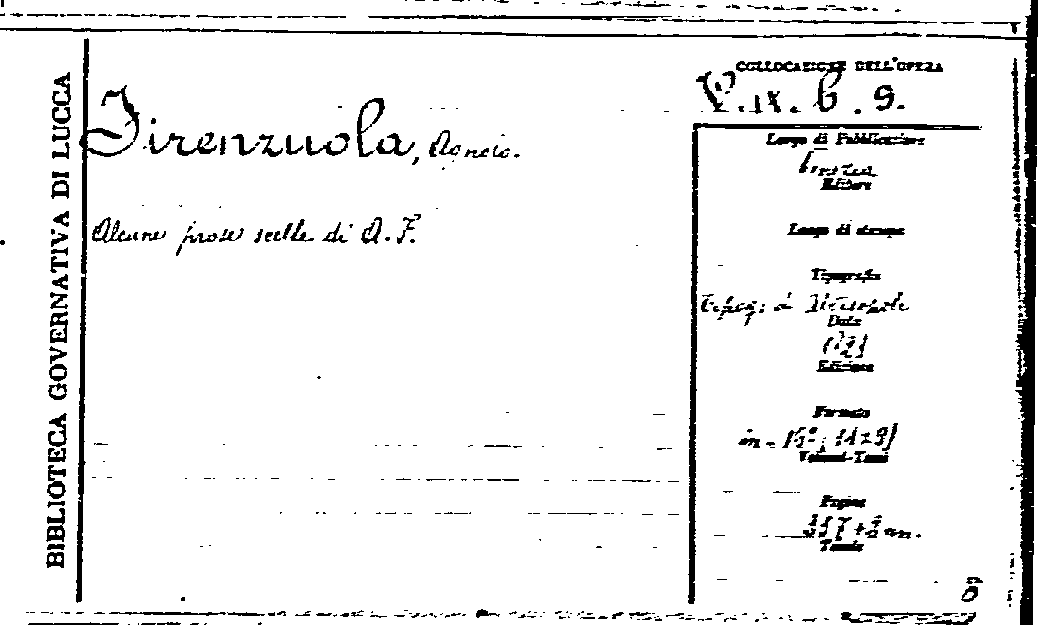 BIBLIOTECA GOVERNATIVA DI LUCCA
Firenzuola, Agnolo.
Alcune prose scelte di A. F.
COLLOCAZIONE DELL'OPERA
P. IX. b. 9.
Luogo di Pubblicazione
Editore
Luogo di stampa
Tipografia
Data
Edizione
Formato
in-16°,
Volumi-Tomi
Pagine
Tavole